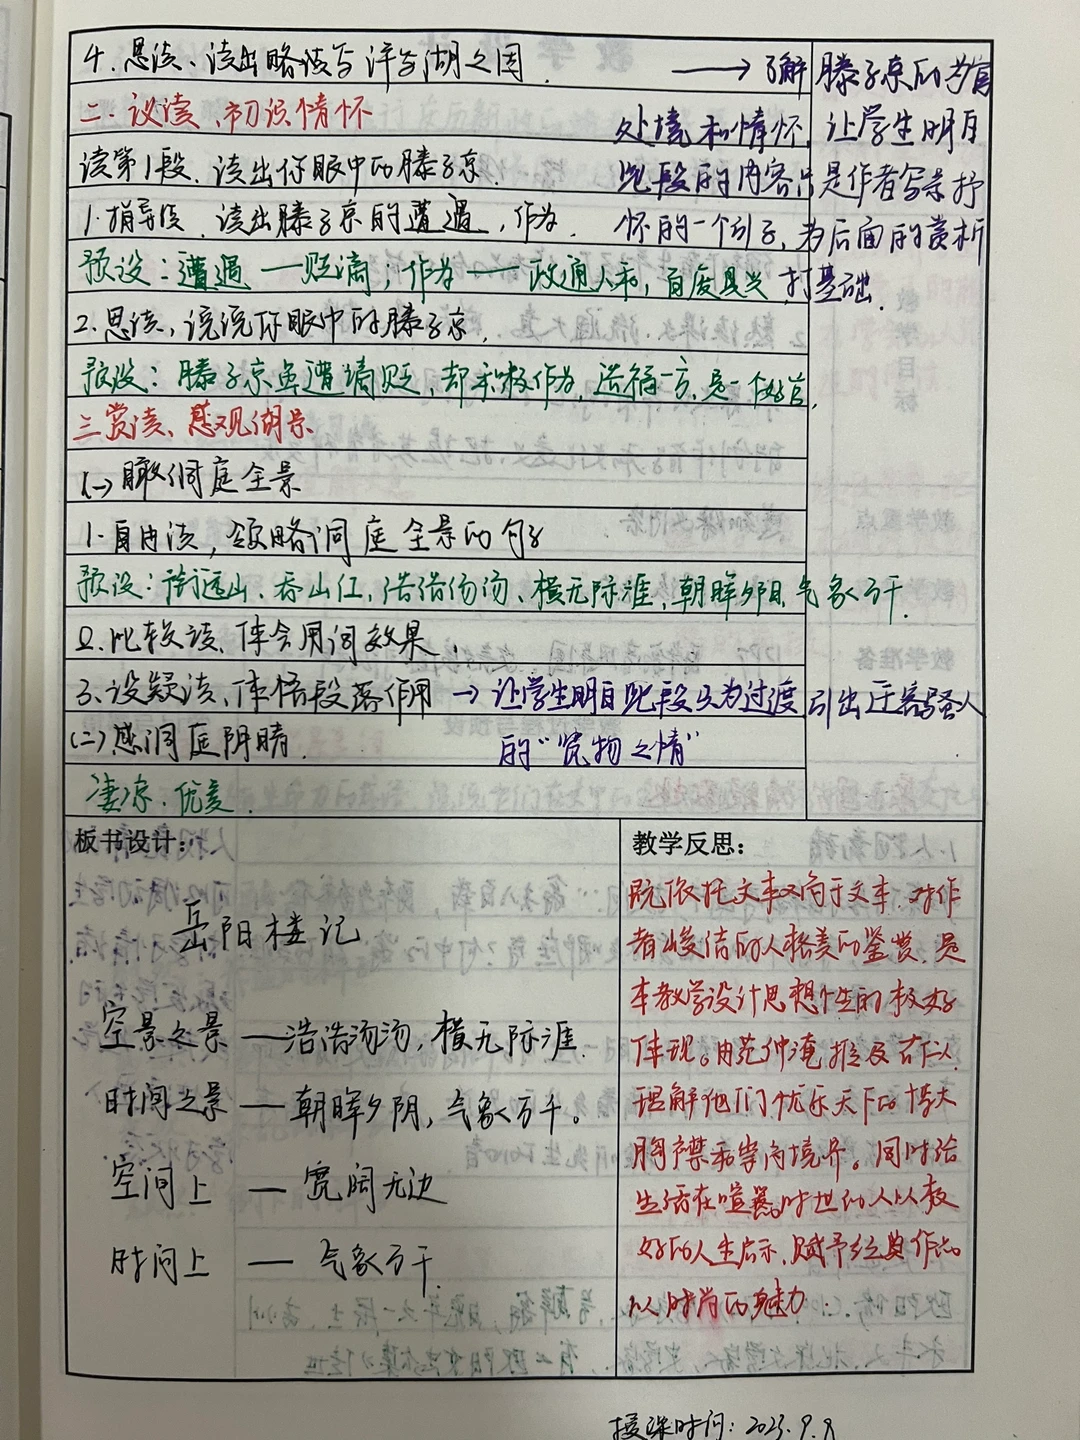 4. 思读、读出略谈与详写湖之因. → 了解滕子京的为官
二. 议读、初识情怀
处境和情怀, 让学生明白
读第1段、读出你眼中的滕子京.
此段的内容只是作者写景抒
1. 指导读、读出滕子京的遭遇, 作为.
怀的一个引子, 为后面的赏析
预设: 遭遇 — 贬谪; 作为 — 政通人和, 百废具兴
打基础.
2. 思读, 说说你眼中的滕子京.
预设: 滕子京虽遭谪贬, 却积极作为, 造福一方, 是一个好官.
三. 赏读、感观湖景
(一) 瞰洞庭全景
1. 自由读, 领略洞庭全景的句子
预设: 衔远山、吞山江, 浩浩汤汤、横无际涯, 朝晖夕阴, 气象万千.
2. 比较读、体会用词效果.
3. 设疑读、体悟段落作用 → 让学生明白此段又为过渡, 引出迁客骚人
的“览物之情”
(二) 感洞庭阴晴.
凄凉. 优美.
板书设计:
岳阳楼记
空景之景 — 浩浩汤汤, 横无际涯.
时间之景 — 朝晖夕阴, 气象万千。
空间上 — 宽阔无边
时间上 — 气象万千.
教学反思:
既依托文本又高于文本. 对作
者峻洁的人格美的鉴赏, 是
本教学设计思想性的极好
体现。由范仲淹推及古仁人
理解他们忧乐天下的博大
胸襟和崇高境界。同时给
生活在喧嚣时世的人以极
好的人生启示, 赋予经典作品
以时尚的魅力
授课时间: 2023.9.8